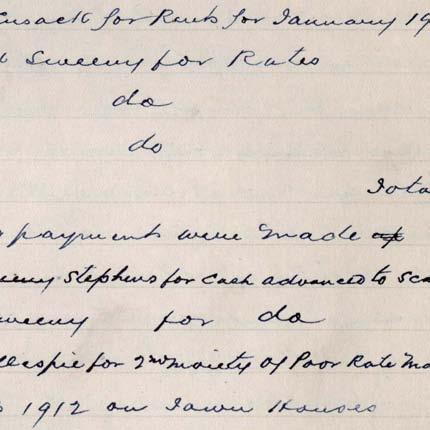 Cusack for Rent for January 19
Sweeny for Rates
do
do
Tota
payments were made
Stephens for cash advanced to Sca
weeny for do
llespie for 2nd moiety of Poor Rate Ma
1912 on Town Houses